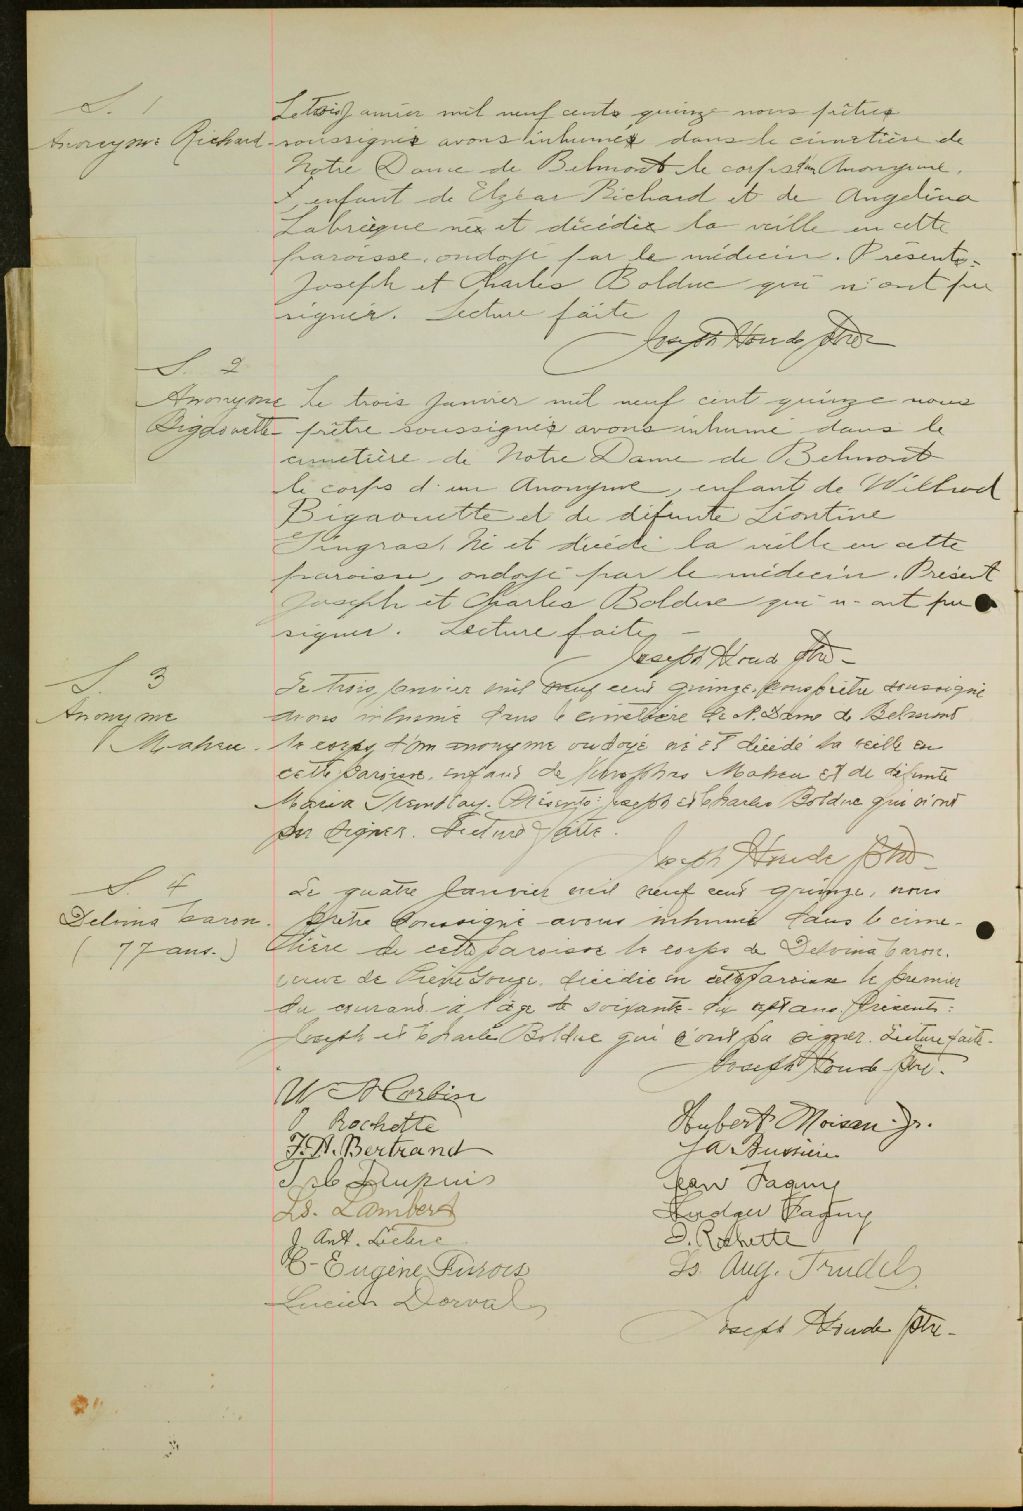 S. 1
Anonyme Richard
Le trois Janvier mil neuf cent quinze nous prêtre
soussigné avons inhumé dans le cimetière de
Notre Dame de Belmont le corps d'un Anonyme,
enfant de Elzéar Richard et de Angelina
Labrèque né et décédé la veille en cette
paroisse, ondoyé par le médecin. Présents:
Joseph et Charles Bolduc qui n'ont pu
signer. Lecture faite
Joseph Houde Ptre
S. 2
Anonyme
Bigaouette
Le trois Janvier mil neuf cent quinze nous
prêtre soussigné avons inhumé dans le
cimetière de Notre Dame de Belmont
le corps d'un Anonyme, enfant de Wilbrod
Bigaouette et de défunte Léontine
Gingras. Né et décédé la veille en cette
paroisse, ondoyé par le médecin. Présent
Joseph et Charles Bolduc qui n'ont pu
signer. Lecture faite
Joseph Houde Ptre
S. 3
Anonyme
Maheu
Le trois janvier mil neuf cent quinze, nous prêtre soussigné
avons inhumé dans le cimetière de N. Dame de Belmont
le corps d'un anonyme ondoyé né et décédé la veille en
cette paroisse, enfant de Maheu et de défunte
Maria Tremblay. Présents: Joseph et Charles Bolduc qui n'ont
pu signer. Lecture faite.
Joseph Houde Ptre
S. 4
Delvina Caron
(77 ans.)
Le quatre Janvier mil neuf cent quinze, nous
prêtre soussigné avons inhumé dans le cime-
tière de cette paroisse le corps de Delvina Caron,
veuve de Pierre décédée en cette paroisse le premier
du courant à l'âge de soixante-dix sept ans. Présents:
Joseph et Charles Bolduc qui n'ont pu signer. Lecture faite.
Joseph Houde Ptre.
W A Corbin
Rochette
Hubert Moisan Jr.
F. A. Bertrand
J A Bussière
Dupuis
Jean Faguy
Ls. Lambert
Ludger Faguy
J. Ant. Leclerc
Rochette
C-Eugène Furois
Ls. Aug. Trudel
Lucien Dorval
Joseph Houde Ptre